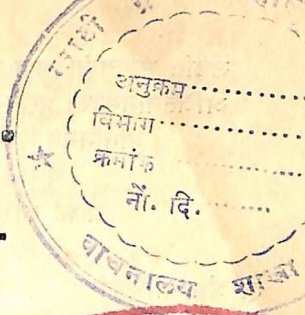 अनुक्रम
विभाग
क्रमांक
नों. दि.
वाचनालय शाखा